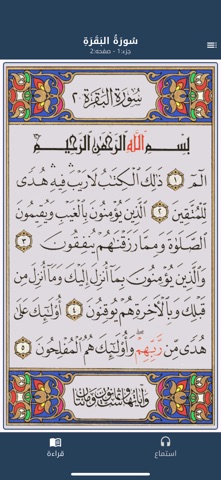 سُورَةُ البَقَرَةِ
جزء:1 - صفحة:2
سُورَةُ الْبَقَرَةِ ٢
بِسْمِ اللَّهِ الرَّحْمَٰنِ الرَّحِيمِ
الٓمٓ ١ ذَٰلِكَ الْكِتَٰبُ لَا رَيْبَ فِيهِ هُدًى
لِّلْمُتَّقِينَ ٢ الَّذِينَ يُؤْمِنُونَ بِالْغَيْبِ وَيُقِيمُونَ
الصَّلَوٰةَ وَمِمَّا رَزَقْنَٰهُمْ يُنفِقُونَ ٣
وَالَّذِينَ يُؤْمِنُونَ بِمَا أُنزِلَ إِلَيْكَ وَمَا أُنزِلَ مِن
قَبْلِكَ وَبِالْآخِرَةِ هُمْ يُوقِنُونَ ٤ أُوْلَٰئِكَ عَلَىٰ
هُدًى مِّن رَّبِّهِمْ وَأُوْلَٰئِكَ هُمُ الْمُفْلِحُونَ ٥
وآياتها مائتان وست وثمانون
قراءة
استماع